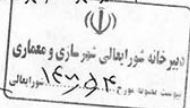 دبیرخانه شورایعالی شهرسازی و معماری
پیوست مصوبه مورخ شورایعالی